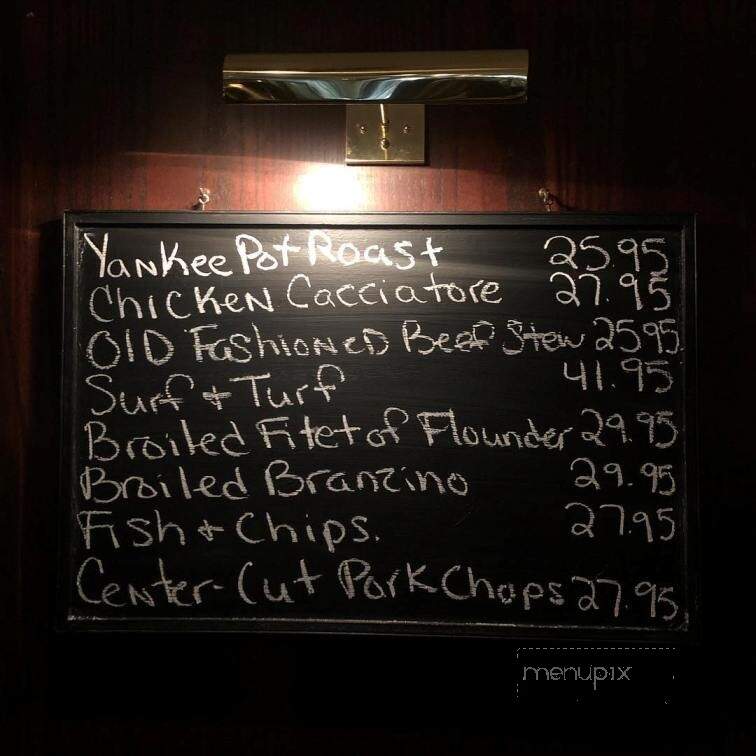 Yankee Pot Roast 25.95
Chicken Cacciatore 27.95
Old Fashioned Beef Stew 25.95
Surf + Turf 41.95
Broiled Filet of Flounder 29.95
Broiled Branzino 29.95
Fish + Chips. 27.95
Center-Cut Pork Chops 27.95
menupix